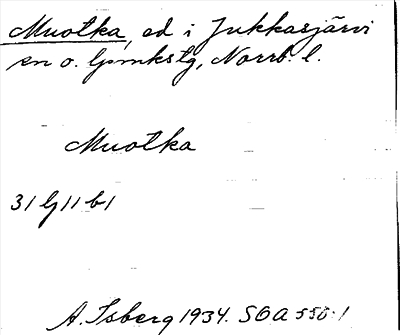 Muotka, ed i Jukkasjärvi
sn o. lpmkstg, Norrb. l.
Muotka
31 Ij 11 b 1
A. Isberg 1934. SOA 550:1